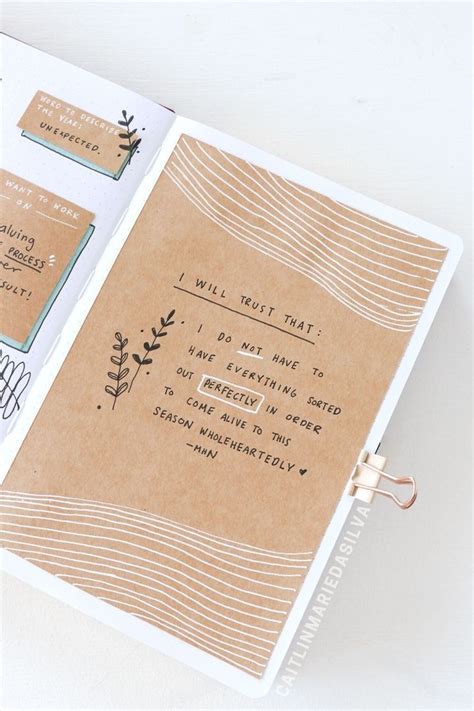 WORD TO DESCRIBE
THE YEAR:
UNEXPECTED.
WANT TO WORK
ON
PROCESS
I WILL TRUST THAT:
I DO NOT HAVE TO
HAVE EVERYTHING SORTED
OUT PERFECTLY IN ORDER
TO COME ALIVE TO THIS
SEASON WHOLEHEARTEDLY
-MHN
CAITLINMARIEDASILVA